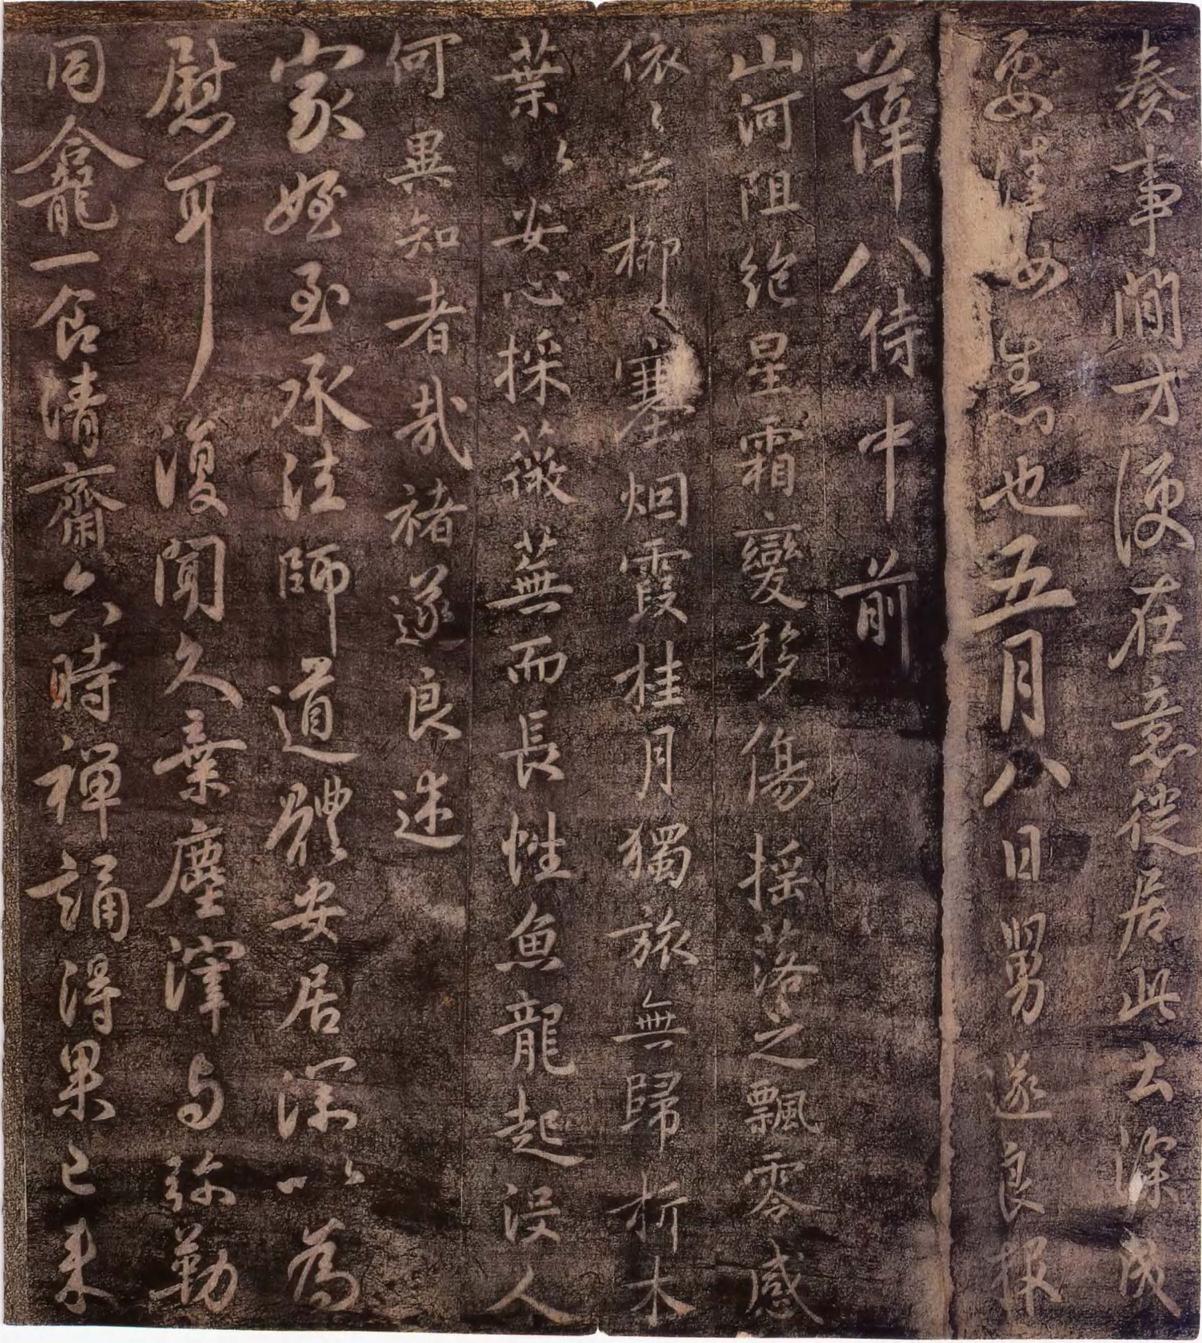 奏事間方便在意從居此去深成
要也五月八日舅遂良報
薛八侍中前
山河阻絶星霜變移傷摇落之飄零感
依〻之柳〻塞烟霞桂月獨旅無歸折木
葉以安心採薇蕪而長性魚龍起没人
何異知者哉褚遂良述
家姪至承法師道體安居深以為
慰耳復聞久棄塵滓与弥勒
同龕一食清齋六時禪誦得果已来